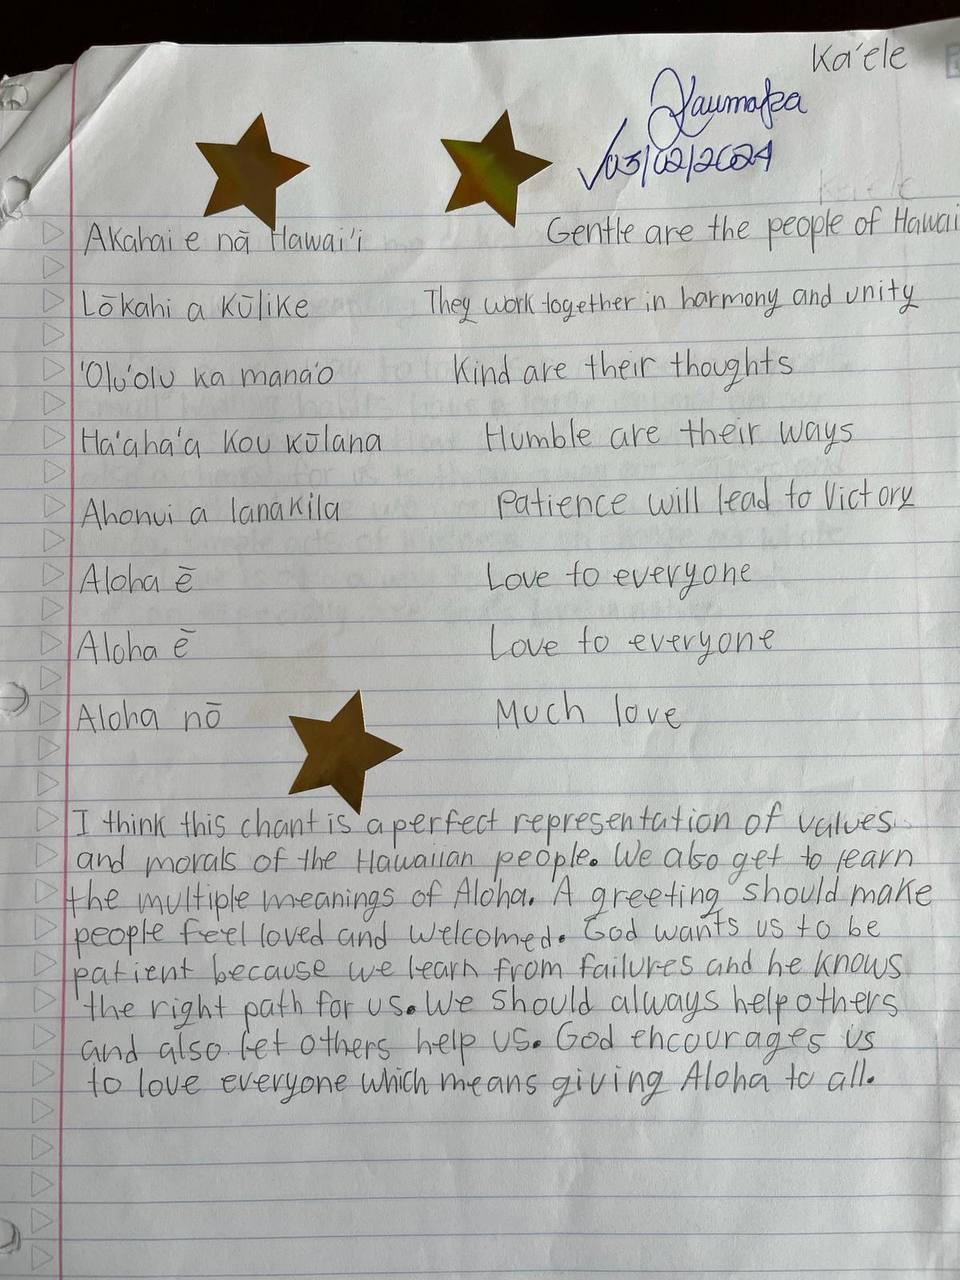 Ka'ele
Kaumaka
√03/02/2024
Akahai e nā Hawai'i Gentle are the people of Hawaii
Lōkahi a Kūlike They work together in harmony and unity
'Olu'olu ka mana'o Kind are their thoughts
Ha'aha'a kou kūlana Humble are their ways
Ahonui a lanakila Patience will lead to Victory
Aloha ē Love to everyone
Aloha ē Love to everyone
Aloha nō Much love
I think this chant is a perfect representation of values
and morals of the Hawaiian people. We also get to learn
the multiple meanings of Aloha. A greeting should make
people feel loved and welcomed. God wants us to be
patient because we learn from failures and he knows
the right path for us. We should always help others
and also let others help us. God encourages us
to love everyone which means giving Aloha to all.